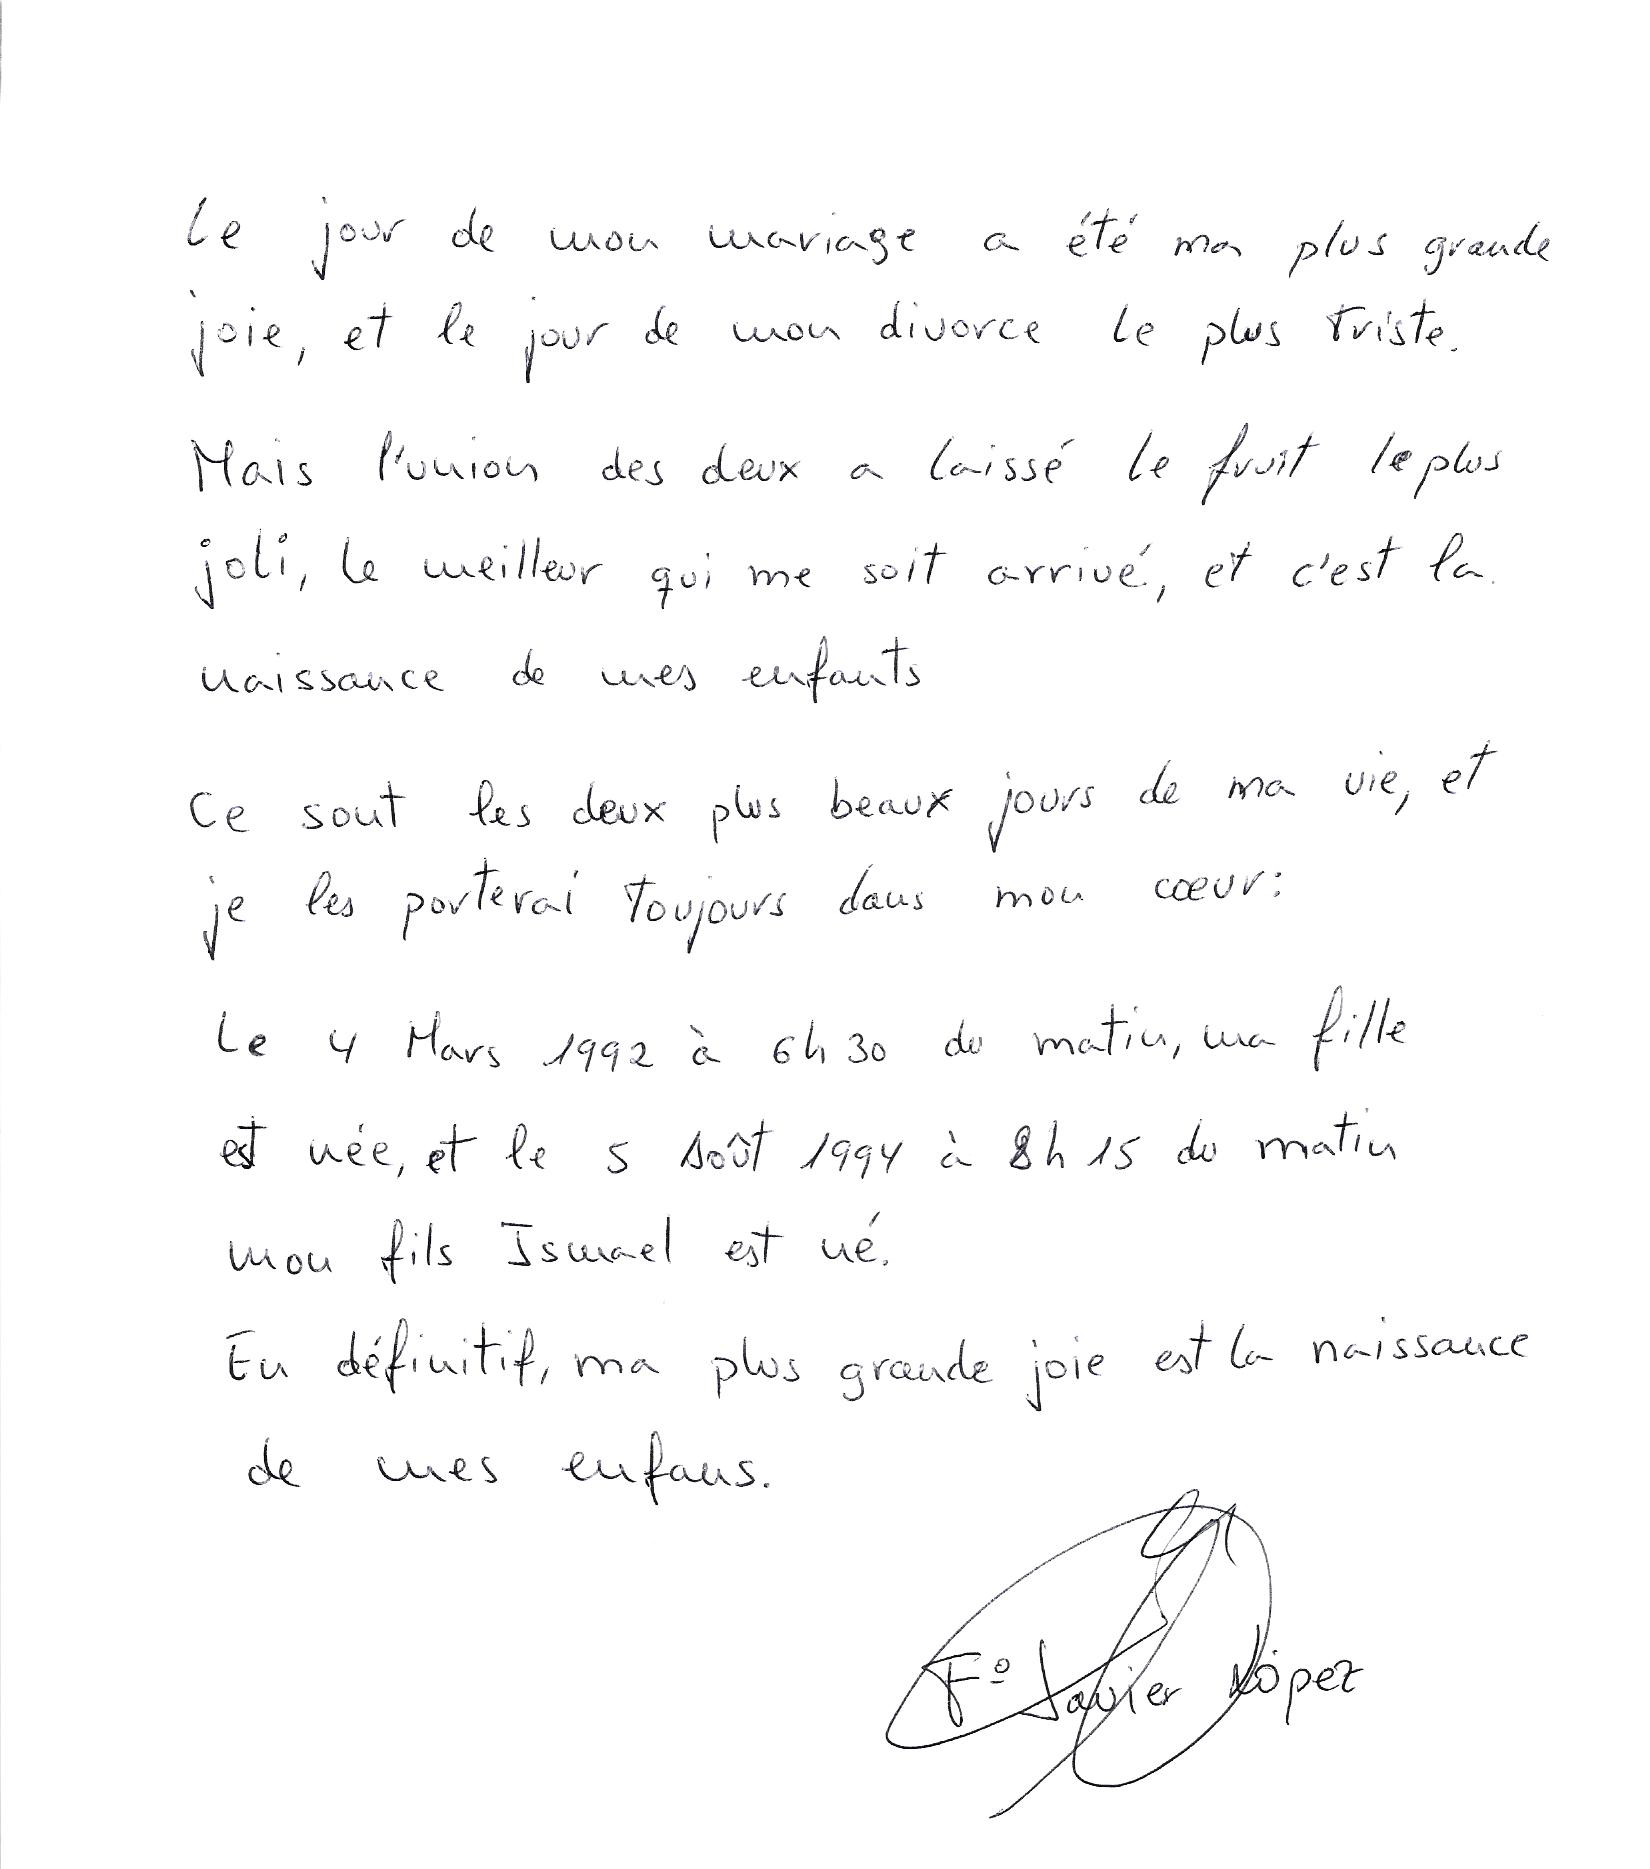 Le jour de mon mariage a été ma plus grande
joie, et le jour de mon divorce le plus triste.
Mais l'union des deux a laissé le fruit le plus
joli, le meilleur qui me soit arrivé, et c'est la
naissance de mes enfants
Ce sont les deux plus beaux jours de ma vie, et
je les porterai toujours dans mon cœur:
Le 4 Mars 1992 à 6h30 du matin, ma fille
est née, et le 5 Août 1994 à 8h15 du matin
mon fils Ismael est né.
En définitif, ma plus grande joie est la naissance
de mes enfans.
Fº Javier López